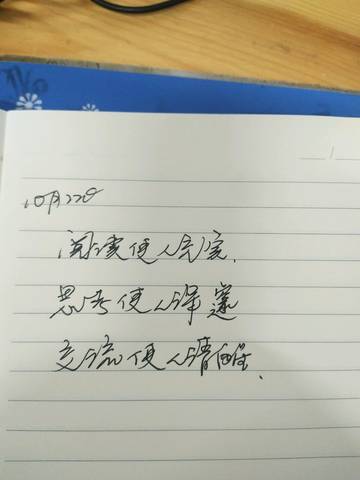 10月22日
阅读使人充实,
思考使人深邃
交流使人清醒.